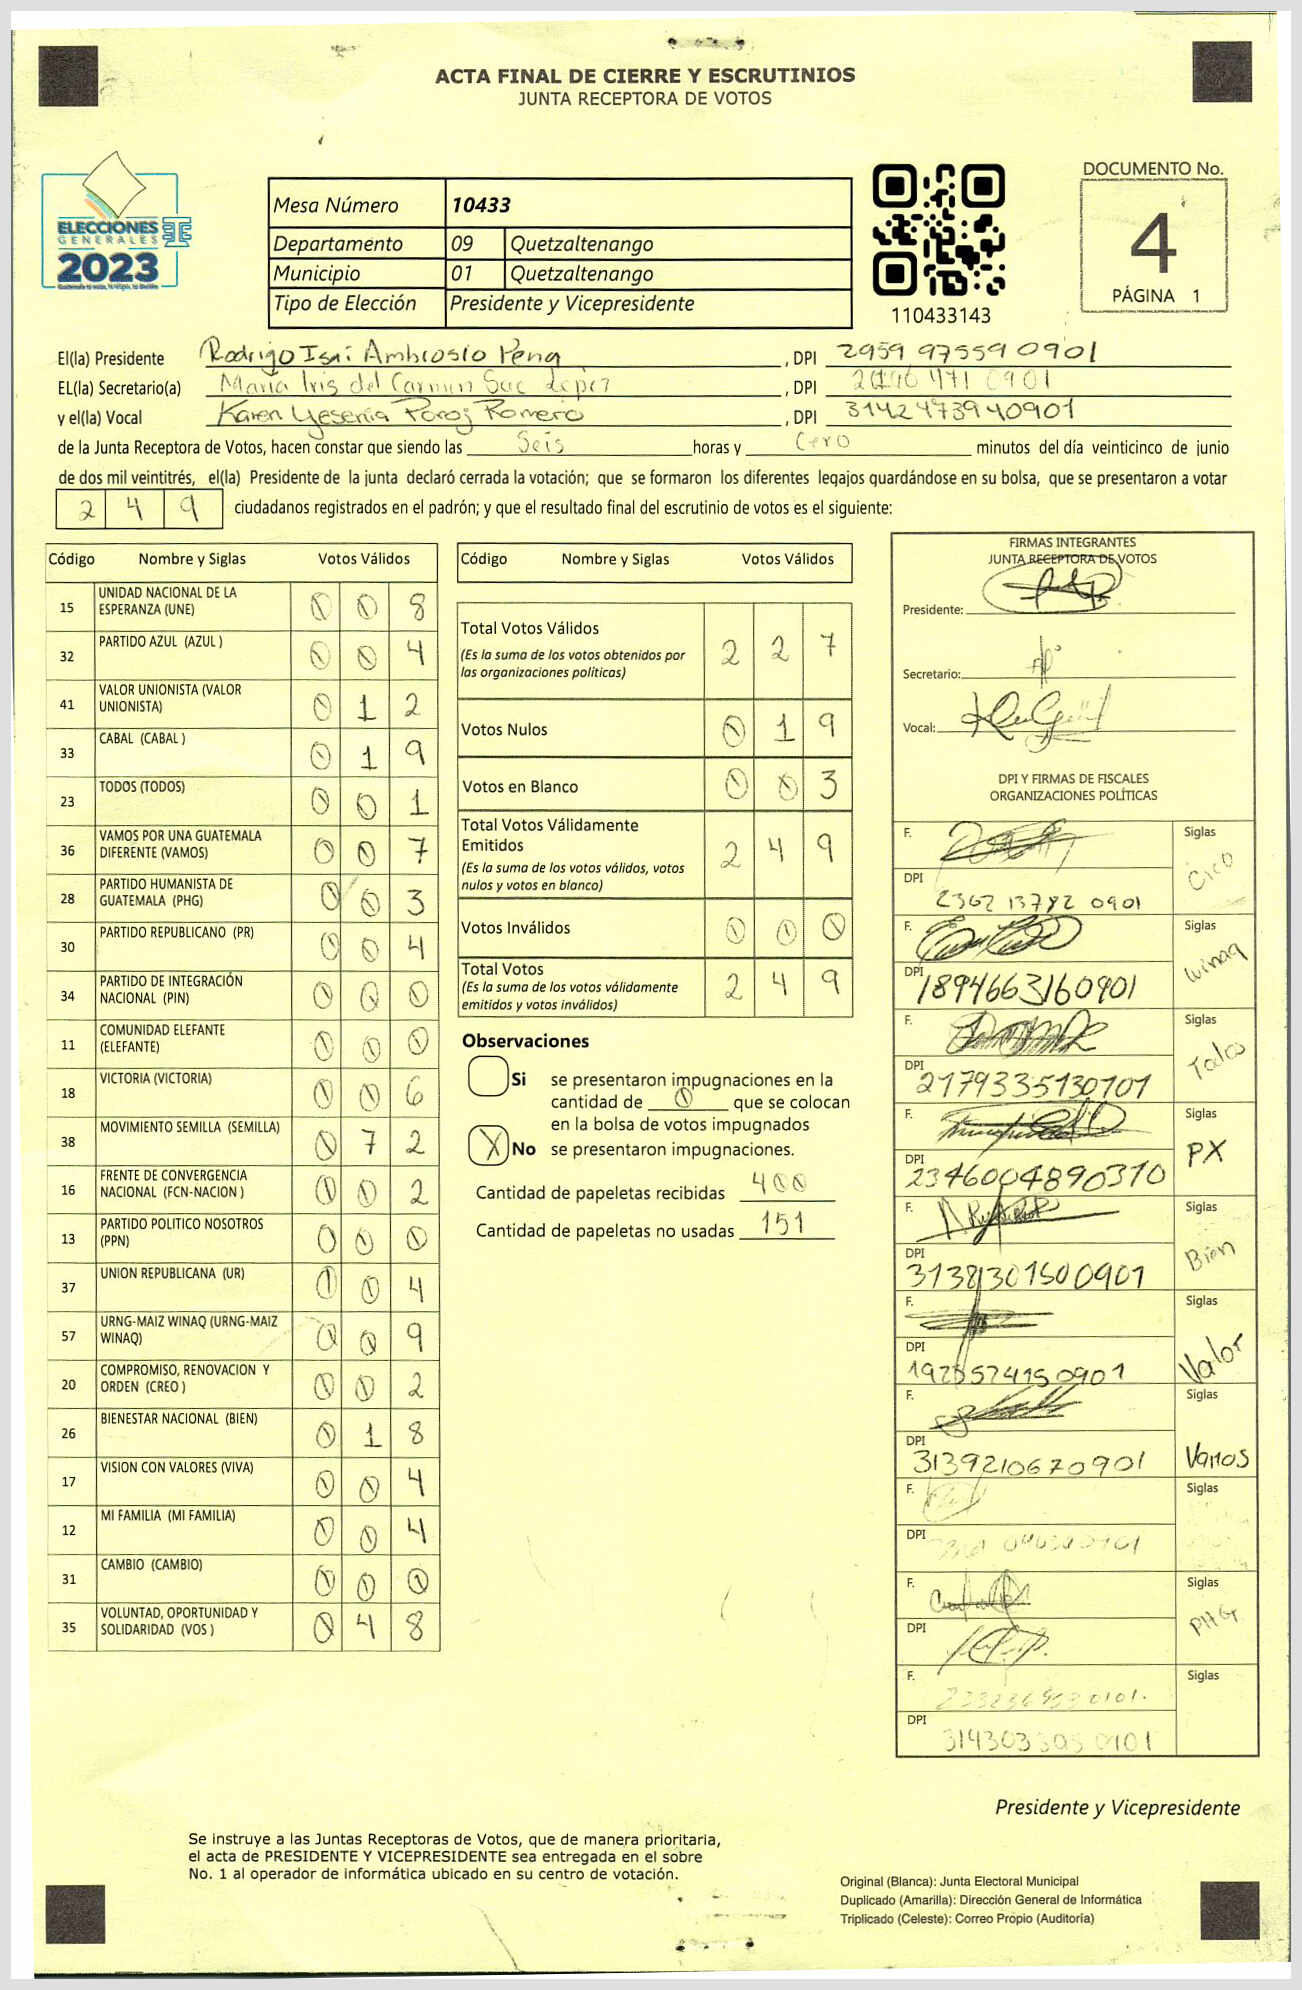 ACTA FINAL DE CIERRE Y ESCRUTINIOS
JUNTA RECEPTORA DE VOTOS
ELECCIONES
GENERALES
2023
TSE
Mesa Número 10433
Departamento 09 Quetzaltenango
Municipio 01 Quetzaltenango
Tipo de Elección Presidente y Vicepresidente
110433143
DOCUMENTO No.
4
PÁGINA 1
El(la) Presidente Rodrigo Isaí Ambrosio Pena, DPI 2959 97559 0901
EL(la) Secretario(a) Maria Iris del Carmen Sac Lopez, DPI 471 0901
y el(la) Vocal Karen Yesenia Poroj Romero, DPI 3142473940901
de la Junta Receptora de Votos, hacen constar que siendo las Seis horas y Cero minutos del día veinticinco de junio
de dos mil veintitrés, el(la) Presidente de la junta declaró cerrada la votación; que se formaron los diferentes legajos guardándose en su bolsa, que se presentaron a votar
2 4 9 ciudadanos registrados en el padrón; y que el resultado final del escrutinio de votos es el siguiente:
Código Nombre y Siglas Votos Válidos
15 UNIDAD NACIONAL DE LA ESPERANZA (UNE) 0 0 8
32 PARTIDO AZUL (AZUL ) 0 0 4
41 VALOR UNIONISTA (VALOR UNIONISTA) 0 1 2
33 CABAL (CABAL ) 0 1 9
23 TODOS (TODOS) 0 0 1
36 VAMOS POR UNA GUATEMALA DIFERENTE (VAMOS) 0 0 7
28 PARTIDO HUMANISTA DE GUATEMALA (PHG) 0 0 3
30 PARTIDO REPUBLICANO (PR) 0 0 4
34 PARTIDO DE INTEGRACIÓN NACIONAL (PIN) 0 0 0
11 COMUNIDAD ELEFANTE (ELEFANTE) 0 0 0
18 VICTORIA (VICTORIA) 0 0 6
38 MOVIMIENTO SEMILLA (SEMILLA) 0 7 2
16 FRENTE DE CONVERGENCIA NACIONAL (FCN-NACION ) 0 0 2
13 PARTIDO POLITICO NOSOTROS (PPN) 0 0 0
37 UNION REPUBLICANA (UR) 0 0 4
57 URNG-MAIZ WINAQ (URNG-MAIZ WINAQ) 0 0 9
20 COMPROMISO, RENOVACION Y ORDEN (CREO ) 0 0 2
26 BIENESTAR NACIONAL (BIEN) 0 1 8
17 VISION CON VALORES (VIVA) 0 0 4
12 MI FAMILIA (MI FAMILIA) 0 0 4
31 CAMBIO (CAMBIO) 0 0 0
35 VOLUNTAD, OPORTUNIDAD Y SOLIDARIDAD (VOS ) 0 4 8
Código Nombre y Siglas Votos Válidos
Total Votos Válidos 2 2 7
(Es la suma de los votos obtenidos por
las organizaciones políticas)
Votos Nulos 0 1 9
Votos en Blanco 0 0 3
Total Votos Válidamente
Emitidos 2 4 9
(Es la suma de los votos válidos, votos
nulos y votos en blanco)
Votos Inválidos 0 0 0
Total Votos 2 4 9
(Es la suma de los votos válidamente
emitidos y votos inválidos)
Observaciones
Si se presentaron impugnaciones en la
cantidad de 0 que se colocan
en la bolsa de votos impugnados
X No se presentaron impugnaciones.
Cantidad de papeletas recibidas 400
Cantidad de papeletas no usadas 151
FIRMAS INTEGRANTES
JUNTA RECEPTORA DE VOTOS
Presidente:
Secretario:
Vocal:
DPI Y FIRMAS DE FISCALES
ORGANIZACIONES POLÍTICAS
F. Siglas
DPI 2362 13782 0901
F. Siglas Winaq
DPI 1894663160901
F. Siglas Todos
DPI 2179335130101
F. Siglas PX
DPI 2346004890310
F. Siglas Bien
DPI 3138301500901
F. Siglas Valor
DPI
F. Siglas Vamos
DPI 3139210670901
F. Siglas
DPI
F. Siglas PHG
DPI
F. Siglas
DPI
Presidente y Vicepresidente
Se instruye a las Juntas Receptoras de Votos, que de manera prioritaria,
el acta de PRESIDENTE Y VICEPRESIDENTE sea entregada en el sobre
No. 1 al operador de informática ubicado en su centro de votación.
Original (Blanca): Junta Electoral Municipal
Duplicado (Amarilla): Dirección General de Informática
Triplicado (Celeste): Correo Propio (Auditoría)